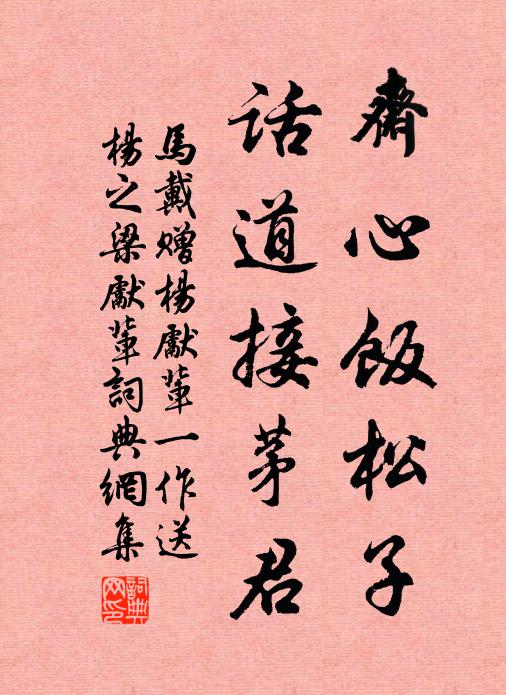 齋心飯松子
話道接茅君
馬戴贈楊獻輩一作送
楊之梁獻輩詞典網集
詞典网印